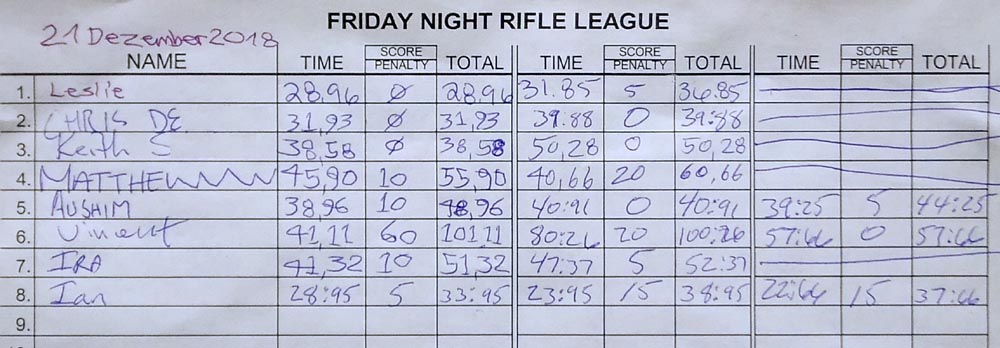 FRIDAY NIGHT RIFLE LEAGUE
21 Dezember 2018
NAME TIME SCORE PENALTY TOTAL TIME SCORE PENALTY TOTAL TIME SCORE PENALTY TOTAL
1. Leslie 28,96 0 28,96 31.85 5 36.85
2. CHRIS DE 31,93 0 31,93 39.88 0 39:88
3. Keith S 38,58 0 38,58 50,28 0 50,28
4. MATTHEW 45,90 10 55,90 40,66 20 60,66
5. AUSHIM 38,96 10 48,96 40:91 0 40:91 39:25 5 44:25
6. Vincent 41,11 60 101,11 80:26 20 100:26 57:66 0 57:66
7. IRA 41,32 10 51,32 47:37 5 52:37
8. Ian 28:95 5 33:95 23:95 15 38:95 22:66 15 37:66
9.